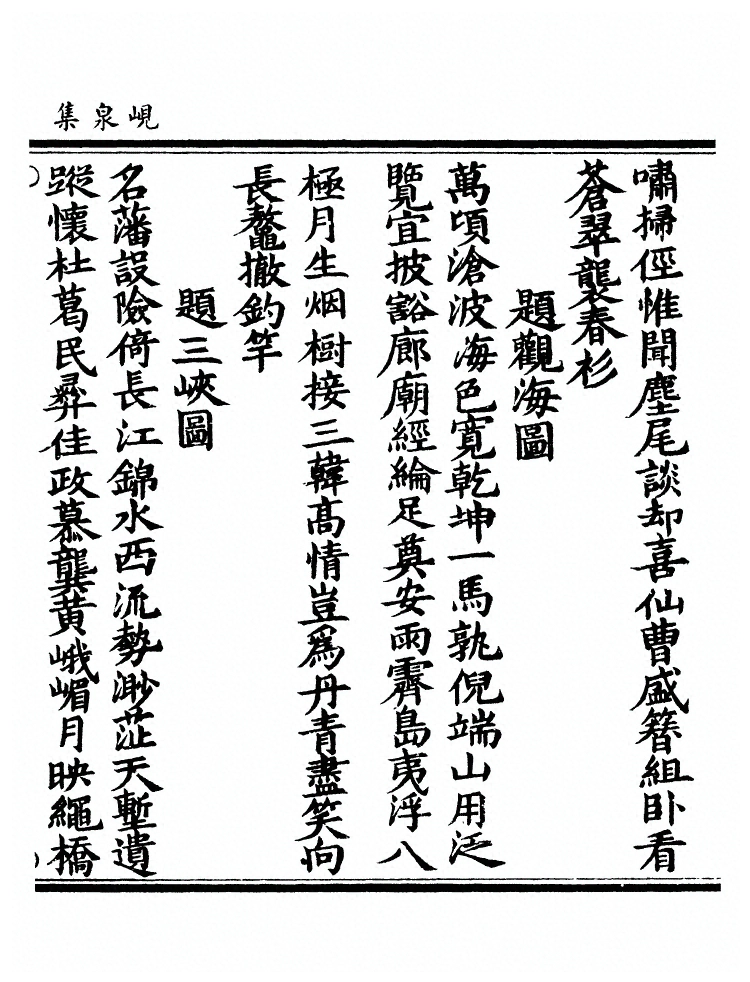 峴泉集
嘯掃徑惟聞塵尾談却喜仙曹盛簪組卧看
蒼翠襲春杉
題觀海圖
萬頃滄波海色寛乾坤一馬孰倪端山用泛
覽宜披豁廊廟經綸足奠安雨霽島夷浮八
極月生烟樹接三韓髙情豈爲丹青盡笑向
長鼇撤釣竿
題三峽圖
名藩設險倚長江錦水西流勢渺茫天塹遺
蹤懷杜葛民彛佳政慕龔黄峨嵋月映繩橋